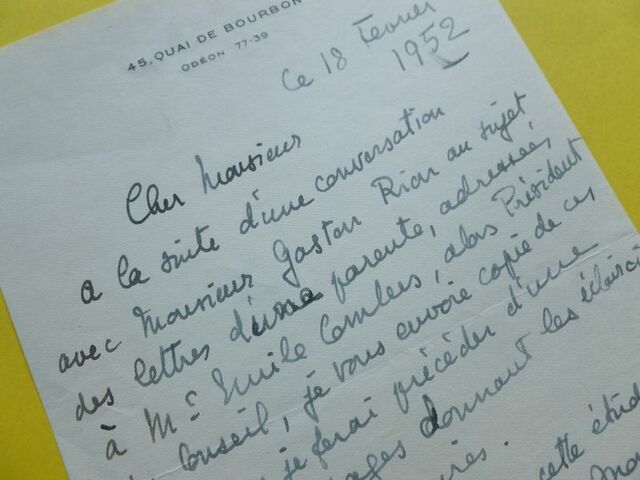 45, QUAI DE BOURBON
ODÉON 77-39
Ce 18 Février
1952
Cher Monsieur
a la suite d'une conversation
avec Monsieur Gaston Riou au sujet
des lettres d'une parente, adressées,
à Mr Emile Combes, alors Président
Conseil, je vous envoie copie de ces
je ferai précéder d'une
pages donnant les éclairci
cette étud